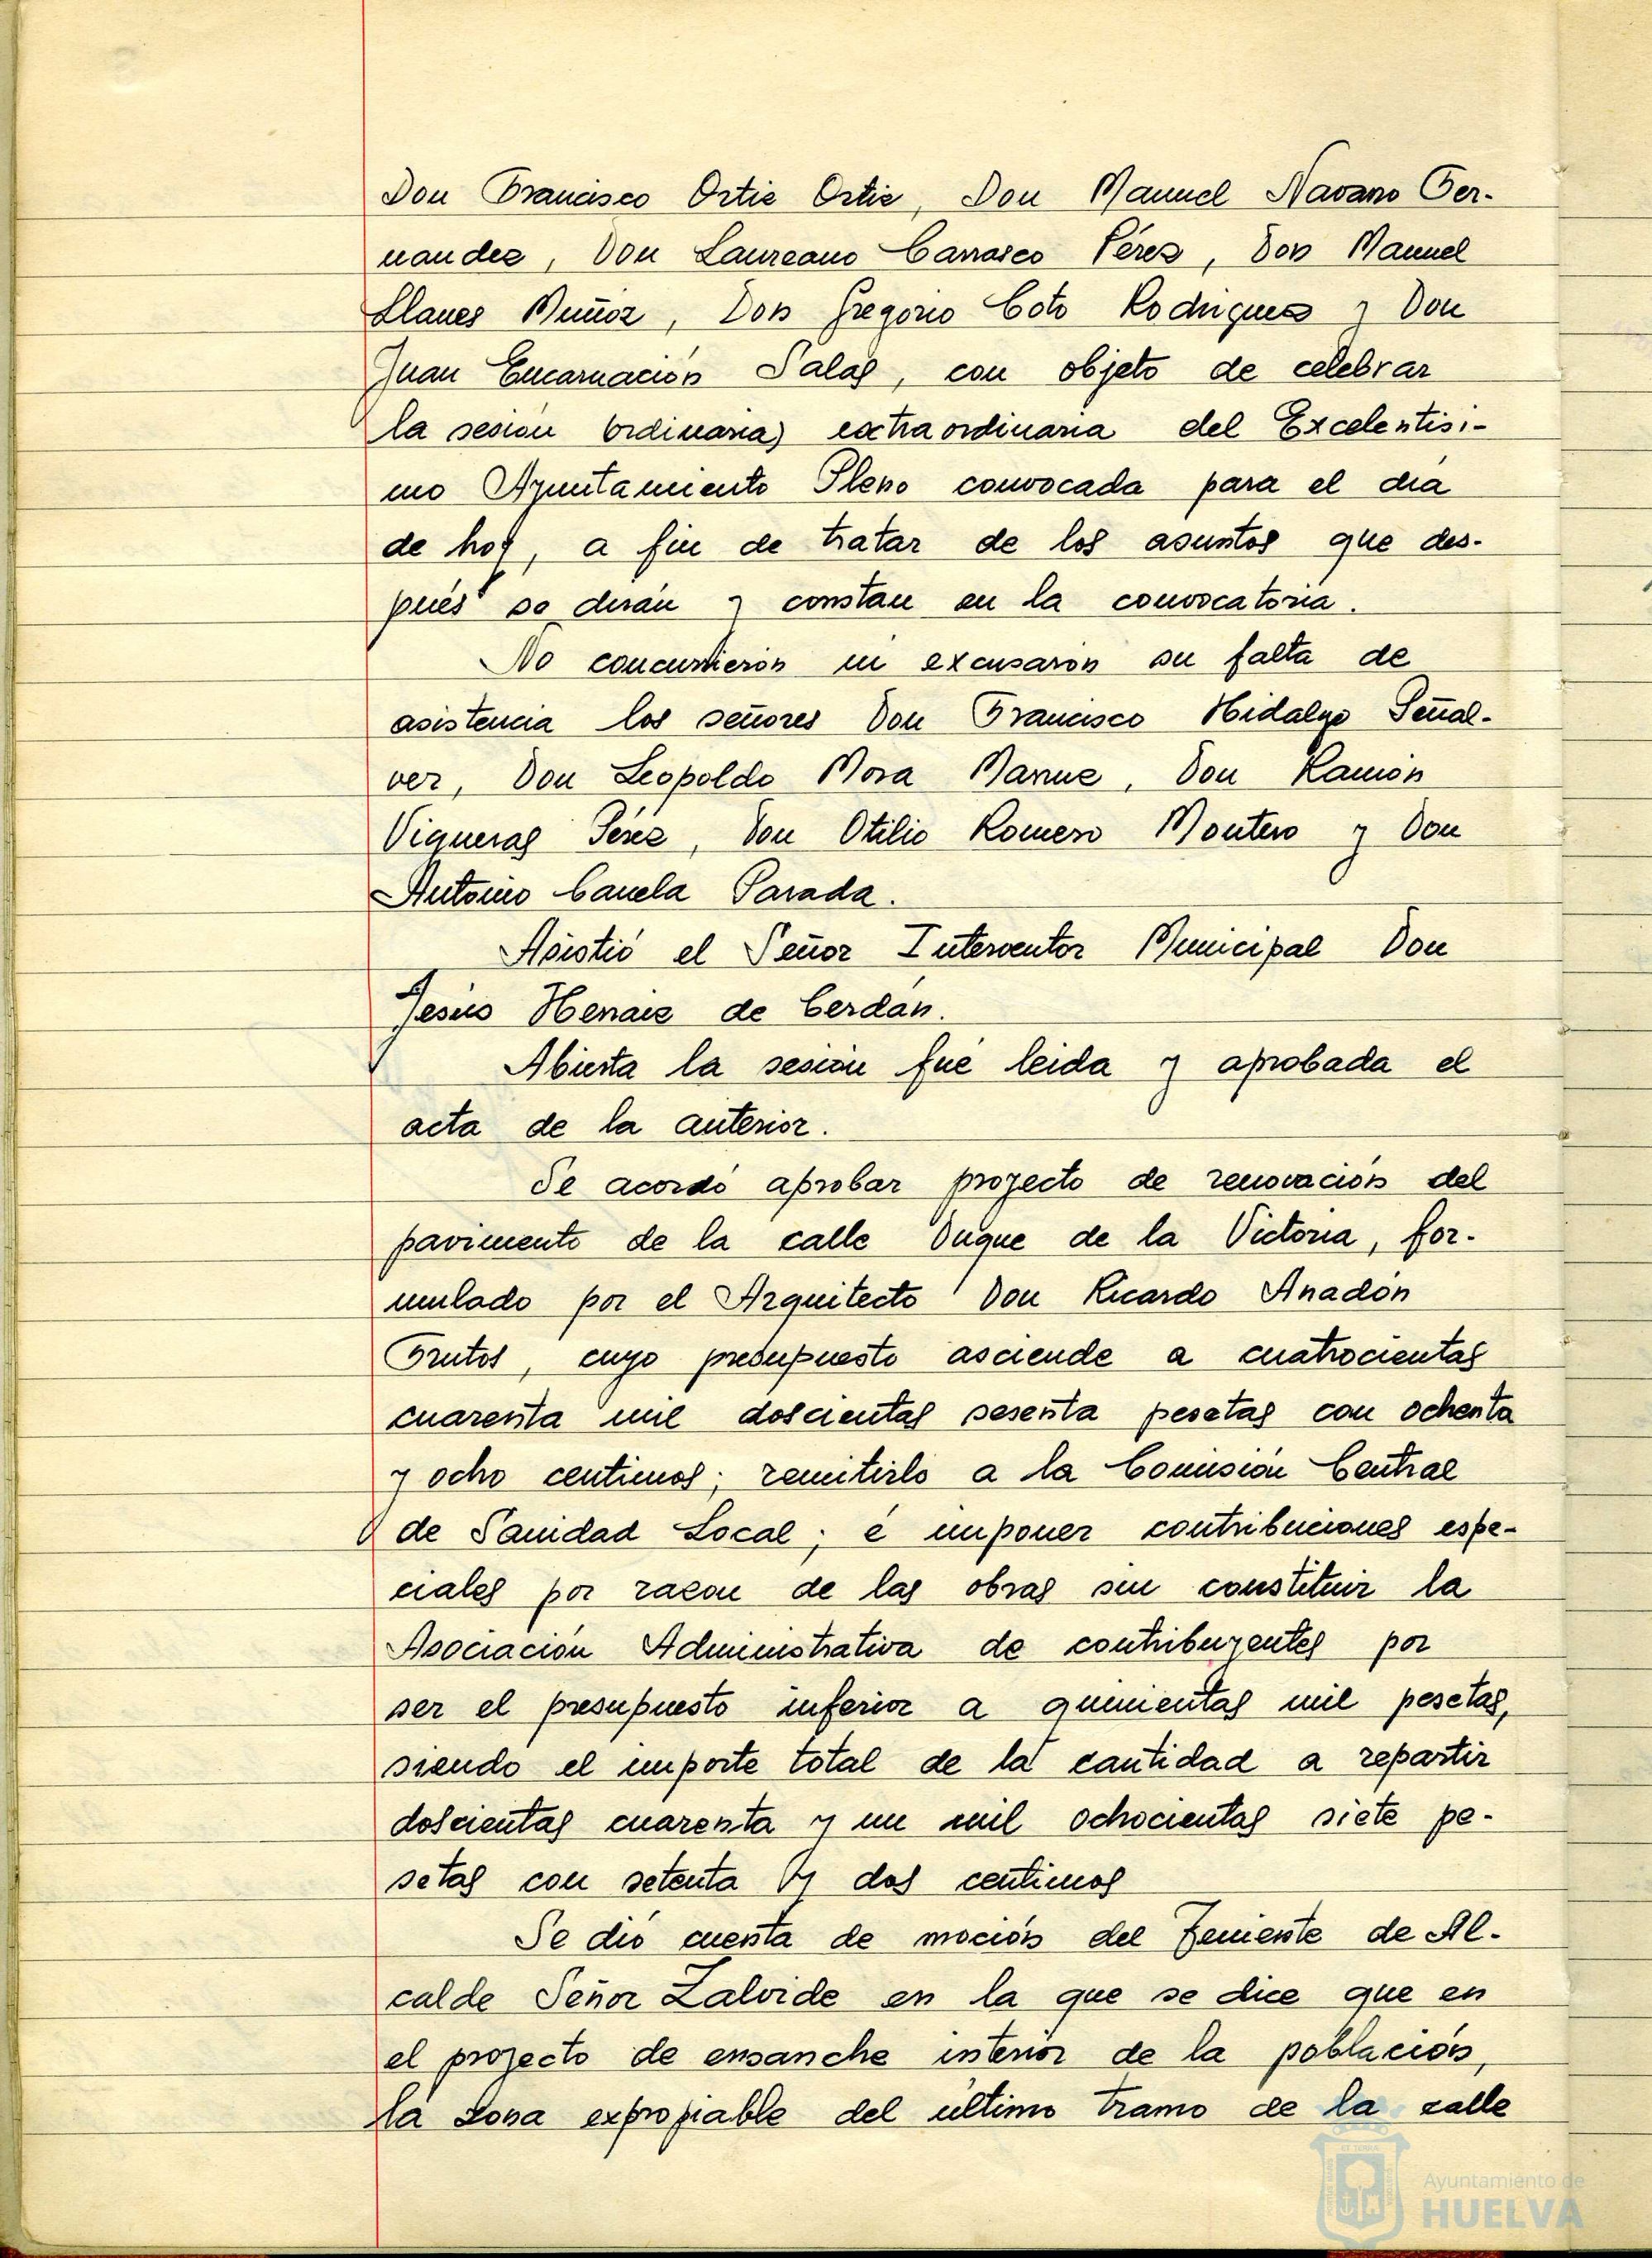 Don Francisco Ortiz Ortiz, Don Manuel Navarro Fer-
nandez, Don Laureano Carrasco Pérez, Don Manuel
Llanes Muñoz, Don Gregorio Coto Rodriguez y Don
Juan Encarnación Salas, con objeto de celebrar
la sesión (ordinaria) extraordinaria del Excelentisi-
mo Ayuntamiento Pleno convocada para el dia
de hoy, a fin de tratar de los asuntos que des-
pués se dirán y constan en la convocatoria.
No concurrieron ni excusaron su falta de
asistencia los señores Don Francisco Hidalgo Peñal-
ver, Don Leopoldo Mora Don Ramón
Vigueras Pérez, Don Otilio Romero Montero y Don
Antonio Canela Parada.
Asistió el Señor Interventor Municipal Don
Jesús Henaiz de Cerdán.
Abierta la sesión fué leida y aprobada el
acta de la anterior.
Se acordó aprobar proyecto de renovación del
pavimento de la calle Duque de la Victoria, for-
mulado por el Arquitecto Don Ricardo Anadón
Frutos, cuyo presupuesto asciende a cuatrocientas
cuarenta mil doscientas sesenta pesetas con ochenta
y ocho centimos; remitirlo a la Comisión Central
de Sanidad Local; é imponer contribuciones espe-
ciales por razon de las obras sin constituir la
Asociación Administrativa de contribuyentes por
ser el presupuesto inferior a quinientas mil pesetas,
siendo el importe total de la cantidad a repartir
doscientas cuarenta y un mil ochocientas siete pe-
setas con setenta y dos centimos
Se dió cuenta de moción del Teniente de Al-
calde Señor Zalvide en la que se dice que en
el proyecto de ensanche interior de la población,
la zona expropiable del último tramo de la calle
Ayuntamiento de
HUELVA